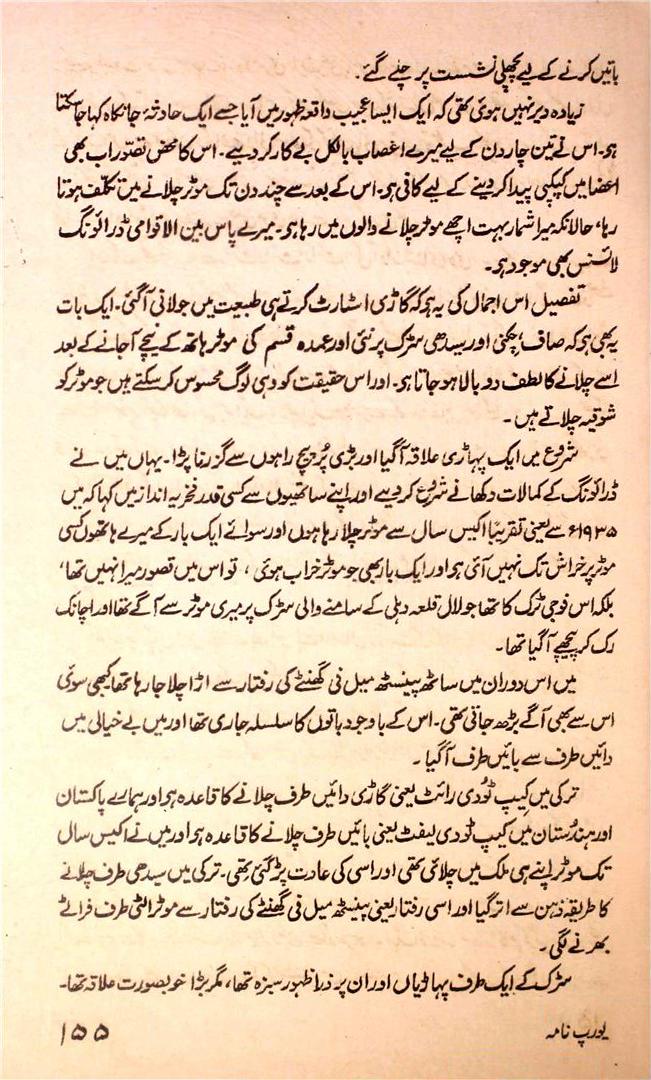 باتیں کرنے کے لیے پچھلی نشست پر چلے گئے۔
زیادہ دیر نہیں ہوئی تھی کہ ایک ایسا عجیب واقعہ ظہور میں آیا جسے ایک حادثۂ جانکاہ کہا جا سکتا
ہو۔ اس نے تین چار دن کے لیے میرے اعصاب بالکل بے کار کر دیے۔ اس کا محض تصوّر اب بھی
اعضا میں کپکپی پیدا کر دینے کے لیے کافی ہو۔ اس کے بعد سے چند دن تک موٹر چلانے میں تکلّف ہوتا
رہا، حالانکہ میرا شمار بہت اچھے موٹر چلانے والوں میں رہا ہو۔ میرے پاس بین الاقوامی ڈرائونگ
لائسنس بھی موجود ہو۔
تفصیل اس اجمال کی یہ ہو کہ گاڑی اسٹارٹ کرتے ہی طبیعت میں جولانی آگئی۔ ایک بات
یہ بھی ہو کہ صاف، چکنی اور سیدھی سڑک پر نئی اور عمدہ قسم کی موٹر ہاتھ کے نیچے آجانے کے بعد
اسے چلانے کا لطف دوبالا ہو جاتا ہو۔ اور اس حقیقت کو وہی لوگ محسوس کر سکتے ہیں جو موٹر کو
شوقیہ چلاتے ہیں۔
شروع میں ایک پہاڑی علاقہ آگیا اور بڑی پُر پیچ راہوں سے گزرنا پڑا۔ یہاں میں نے
ڈرائونگ کے کمالات دکھانے شروع کر دیے اور اپنے ساتھیوں سے کسی قدر فخریہ انداز میں کہا کہ میں
۱۹۳۵ء سے یعنی تقریباً اکیس سال سے موٹر چلا رہا ہوں اور سوائے ایک بار کے میرے ہاتھوں کسی
موٹر پر خراش تک نہیں آئی ہو اور ایک بار بھی جو موٹر خراب ہوئی، تو اس میں قصور میرا نہیں تھا،
بلکہ اس فوجی ٹرک کا تھا جو لال قلعہ دہلی کے سامنے والی سڑک پر میری موٹر سے آگے تھا اور اچانک
رک کر پیچھے آگیا تھا۔
میں اس دوران میں ساٹھ پینسٹھ میل فی گھنٹے کی رفتار سے اڑا چلا جا رہا تھا۔ کبھی سوئی
اس سے بھی آگے بڑھ جاتی تھی۔ اس کے باوجود باتوں کا سلسلہ جاری تھا اور میں بے خیالی میں
دائیں طرف سے بائیں طرف آگیا۔
ترکی میں کیپ ٹوُدی رائٹ یعنی گاڑی دائیں طرف چلانے کا قاعدہ ہو اور ہمارے پاکستان
اور ہندُستان میں کیپ ٹودی لیفٹ یعنی بائیں طرف چلانے کا قاعدہ ہو اور میں نے اکیس سال
تک موٹر اپنے ہی ملک میں چلائی تھی اور اسی کی عادت پڑ گئی تھی۔ ترکی میں سیدھی طرف چلانے
کا طریقہ ذہن سے اتر گیا اور اسی رفتار یعنی پینسٹھ میل فی گھنٹے کی رفتار سے موٹر الٹی طرف فراٹے
بھرنے لگی۔
سڑک کے ایک طرف پہاڑیاں اور ان پر ذرا ظہور سبزہ تھا، مگر بڑا خوبصورت علاقہ تھا۔
یورپ نامہ
۱۵۵